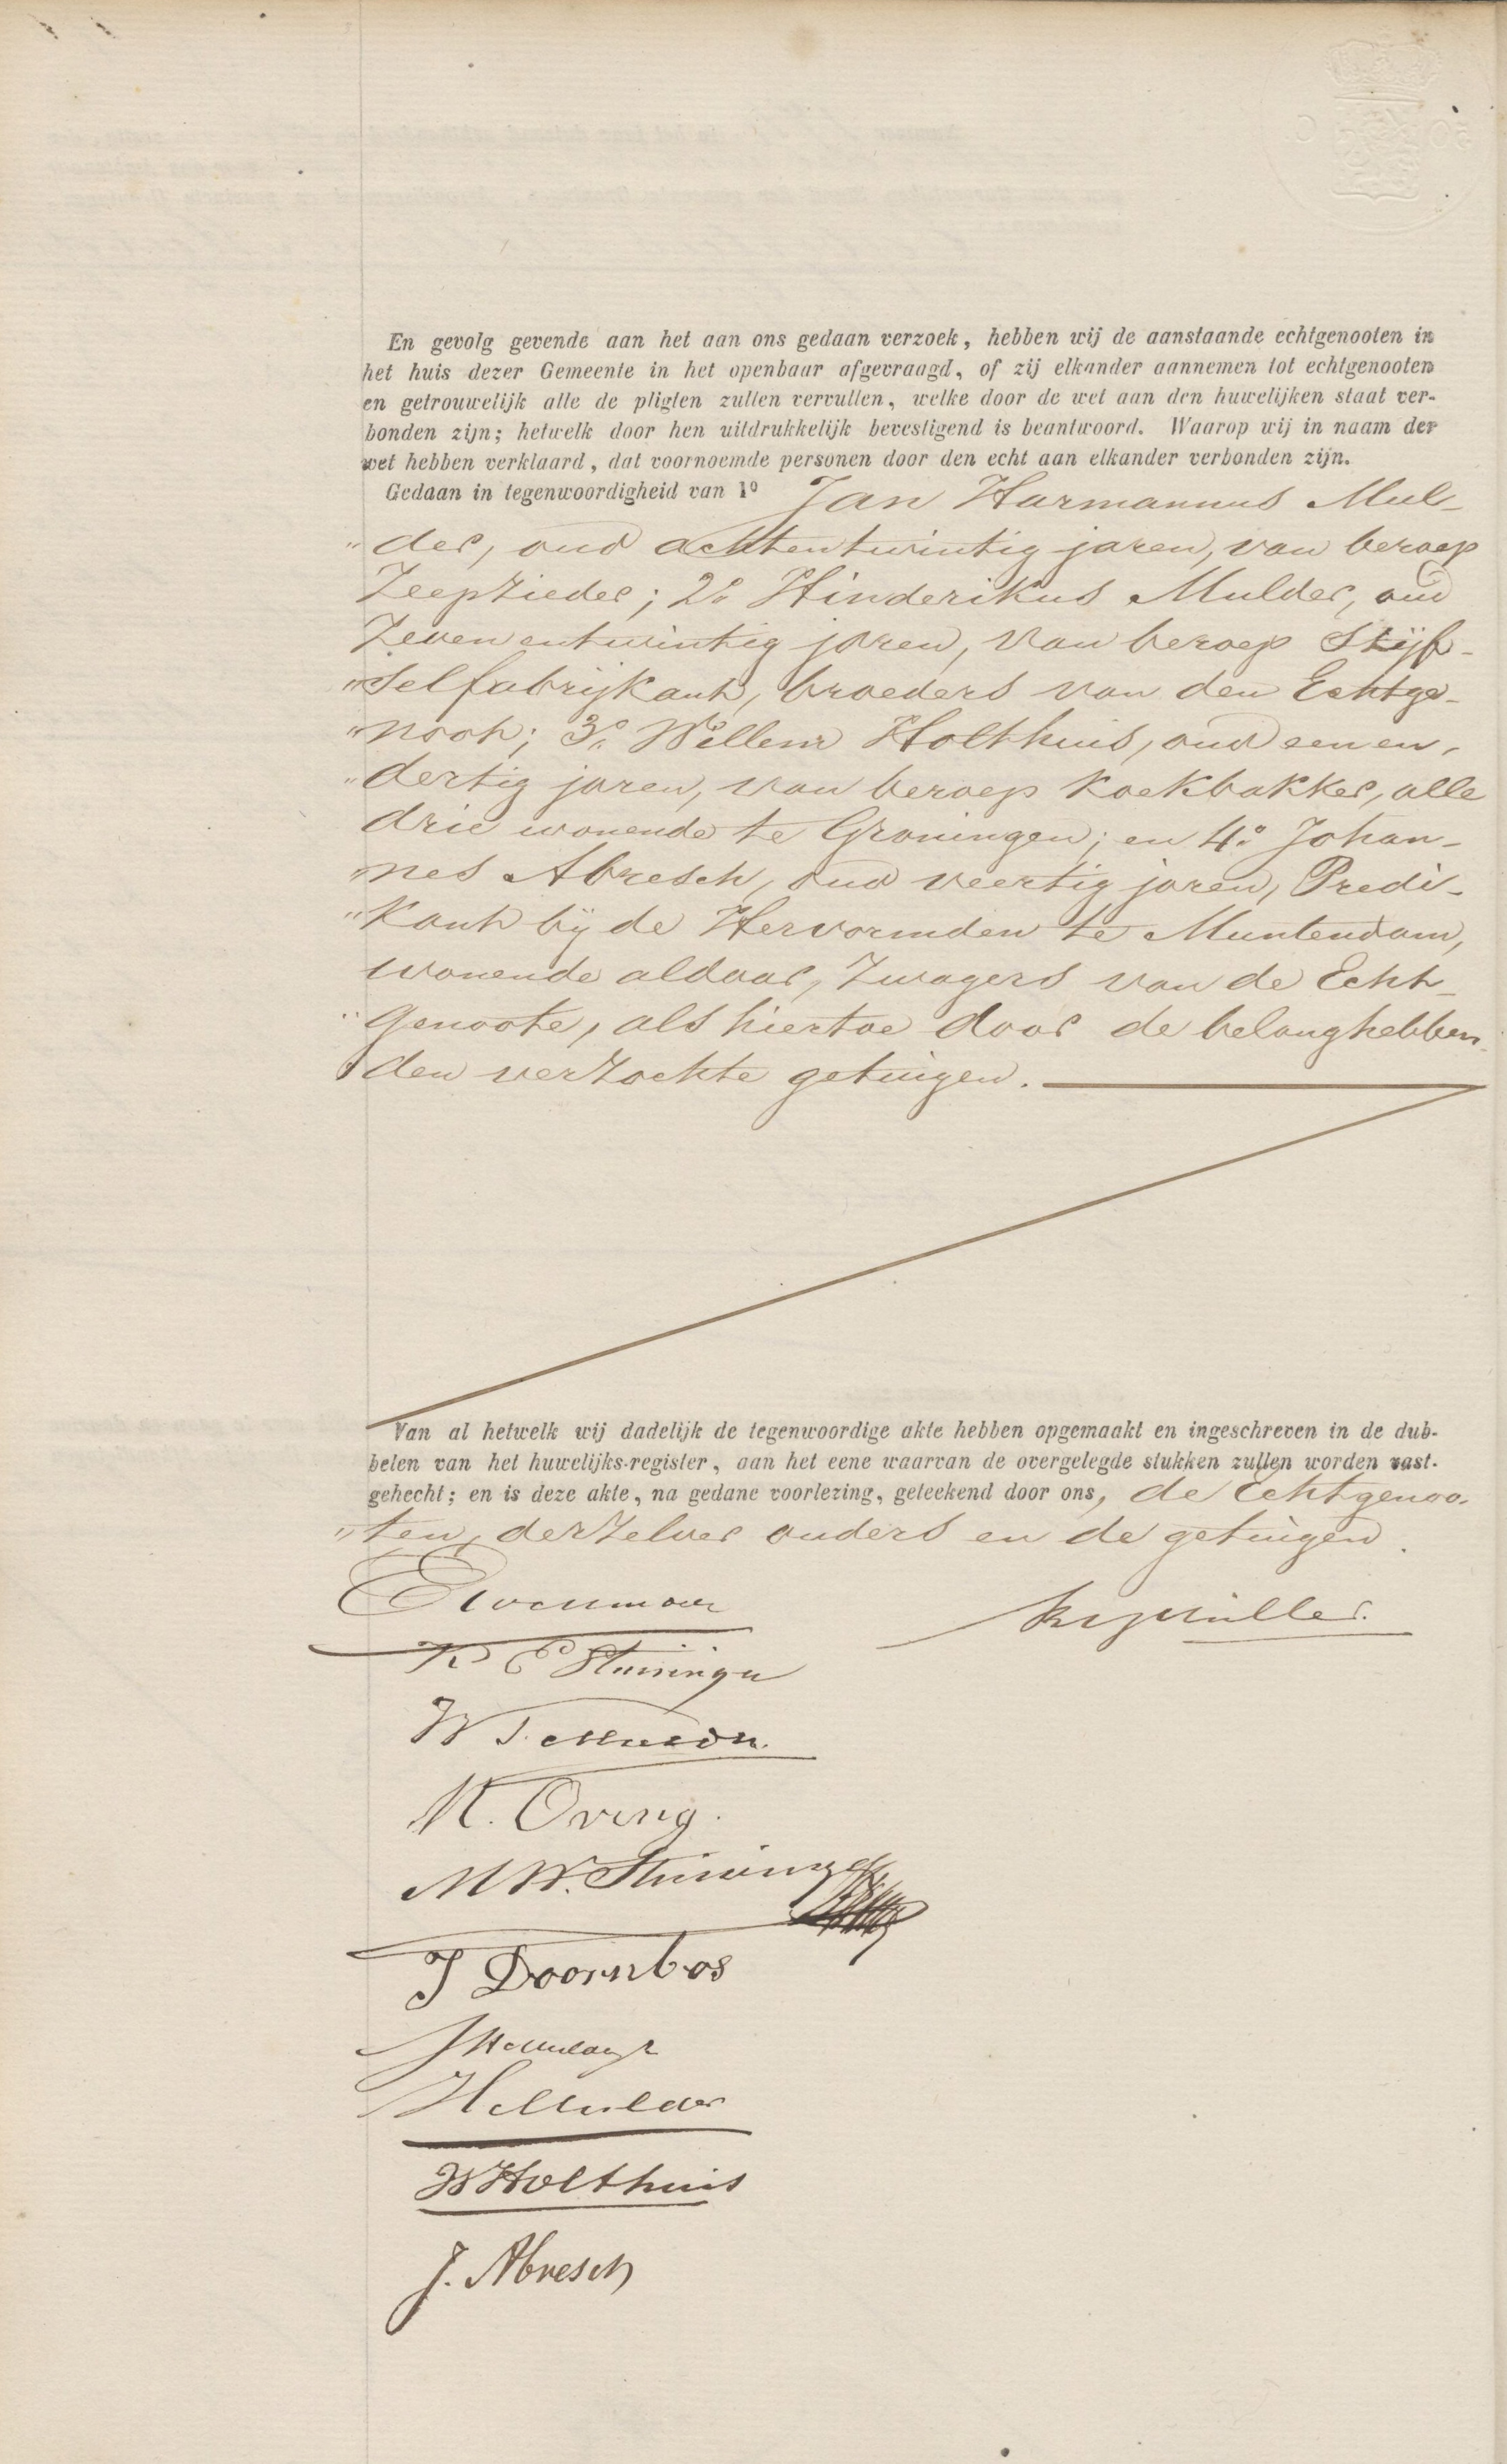 En gevolg gevende aan het aan ons gedaan verzoek, hebben wij de aanstaande echtgenooten in
het huis dezer Gemeente in het openbaar afgevraagd, of zij elkander aannemen tot echtgenooten
en getrouwelijk alle de pligten zullen vervullen, welke door de wet aan den huwelijken staat ver-
bonden zijn; hetwelk door hen uitdrukkelijk bevestigend is beantwoord. Waarop wij in naam der
wet hebben verklaard, dat voornoemde personen door den echt aan elkander verbonden zijn.
Gedaan in tegenwoordigheid van 1º Jan Harmannus Mul-
"der, oud achtentwintig jaren, van beroep
Zeepzieder; 2º Hinderikus Mulder, oud
Zevenentwintig jaren, van beroep Stijf-
"selfabrijkant, broeders van den Echtge-
"noot; 3º Willem Holthuis, oud eenen-
"dertig jaren, van beroep Koekbakker, alle
drie wonende te Groningen; en 4º Johan-
"nes Abresch, oud veertig jaren, Predi-
"kant bij de Hervormden te Muntendam,
wonende aldaar, Zwagers van de Echt-
"genoote, als hiertoe door de belanghebben-
"den verzochte getuigen.
Van al hetwelk wij dadelijk de tegenwoordige akte hebben opgemaakt en ingeschreven in de dub-
belen van het huwelijks-register, aan het eene waarvan de overgelegde stukken zullen worden vast-
gehecht; en is deze akte, na gedane voorlezing, geteekend door ons, de Echtgenoo-
"ten, derzelver ouders en de getuigen.
K E Stuivinga
K. Oving.
M W. Stuivinga
J Doornbos
H Mulder
W Holthuis
J. Abresch